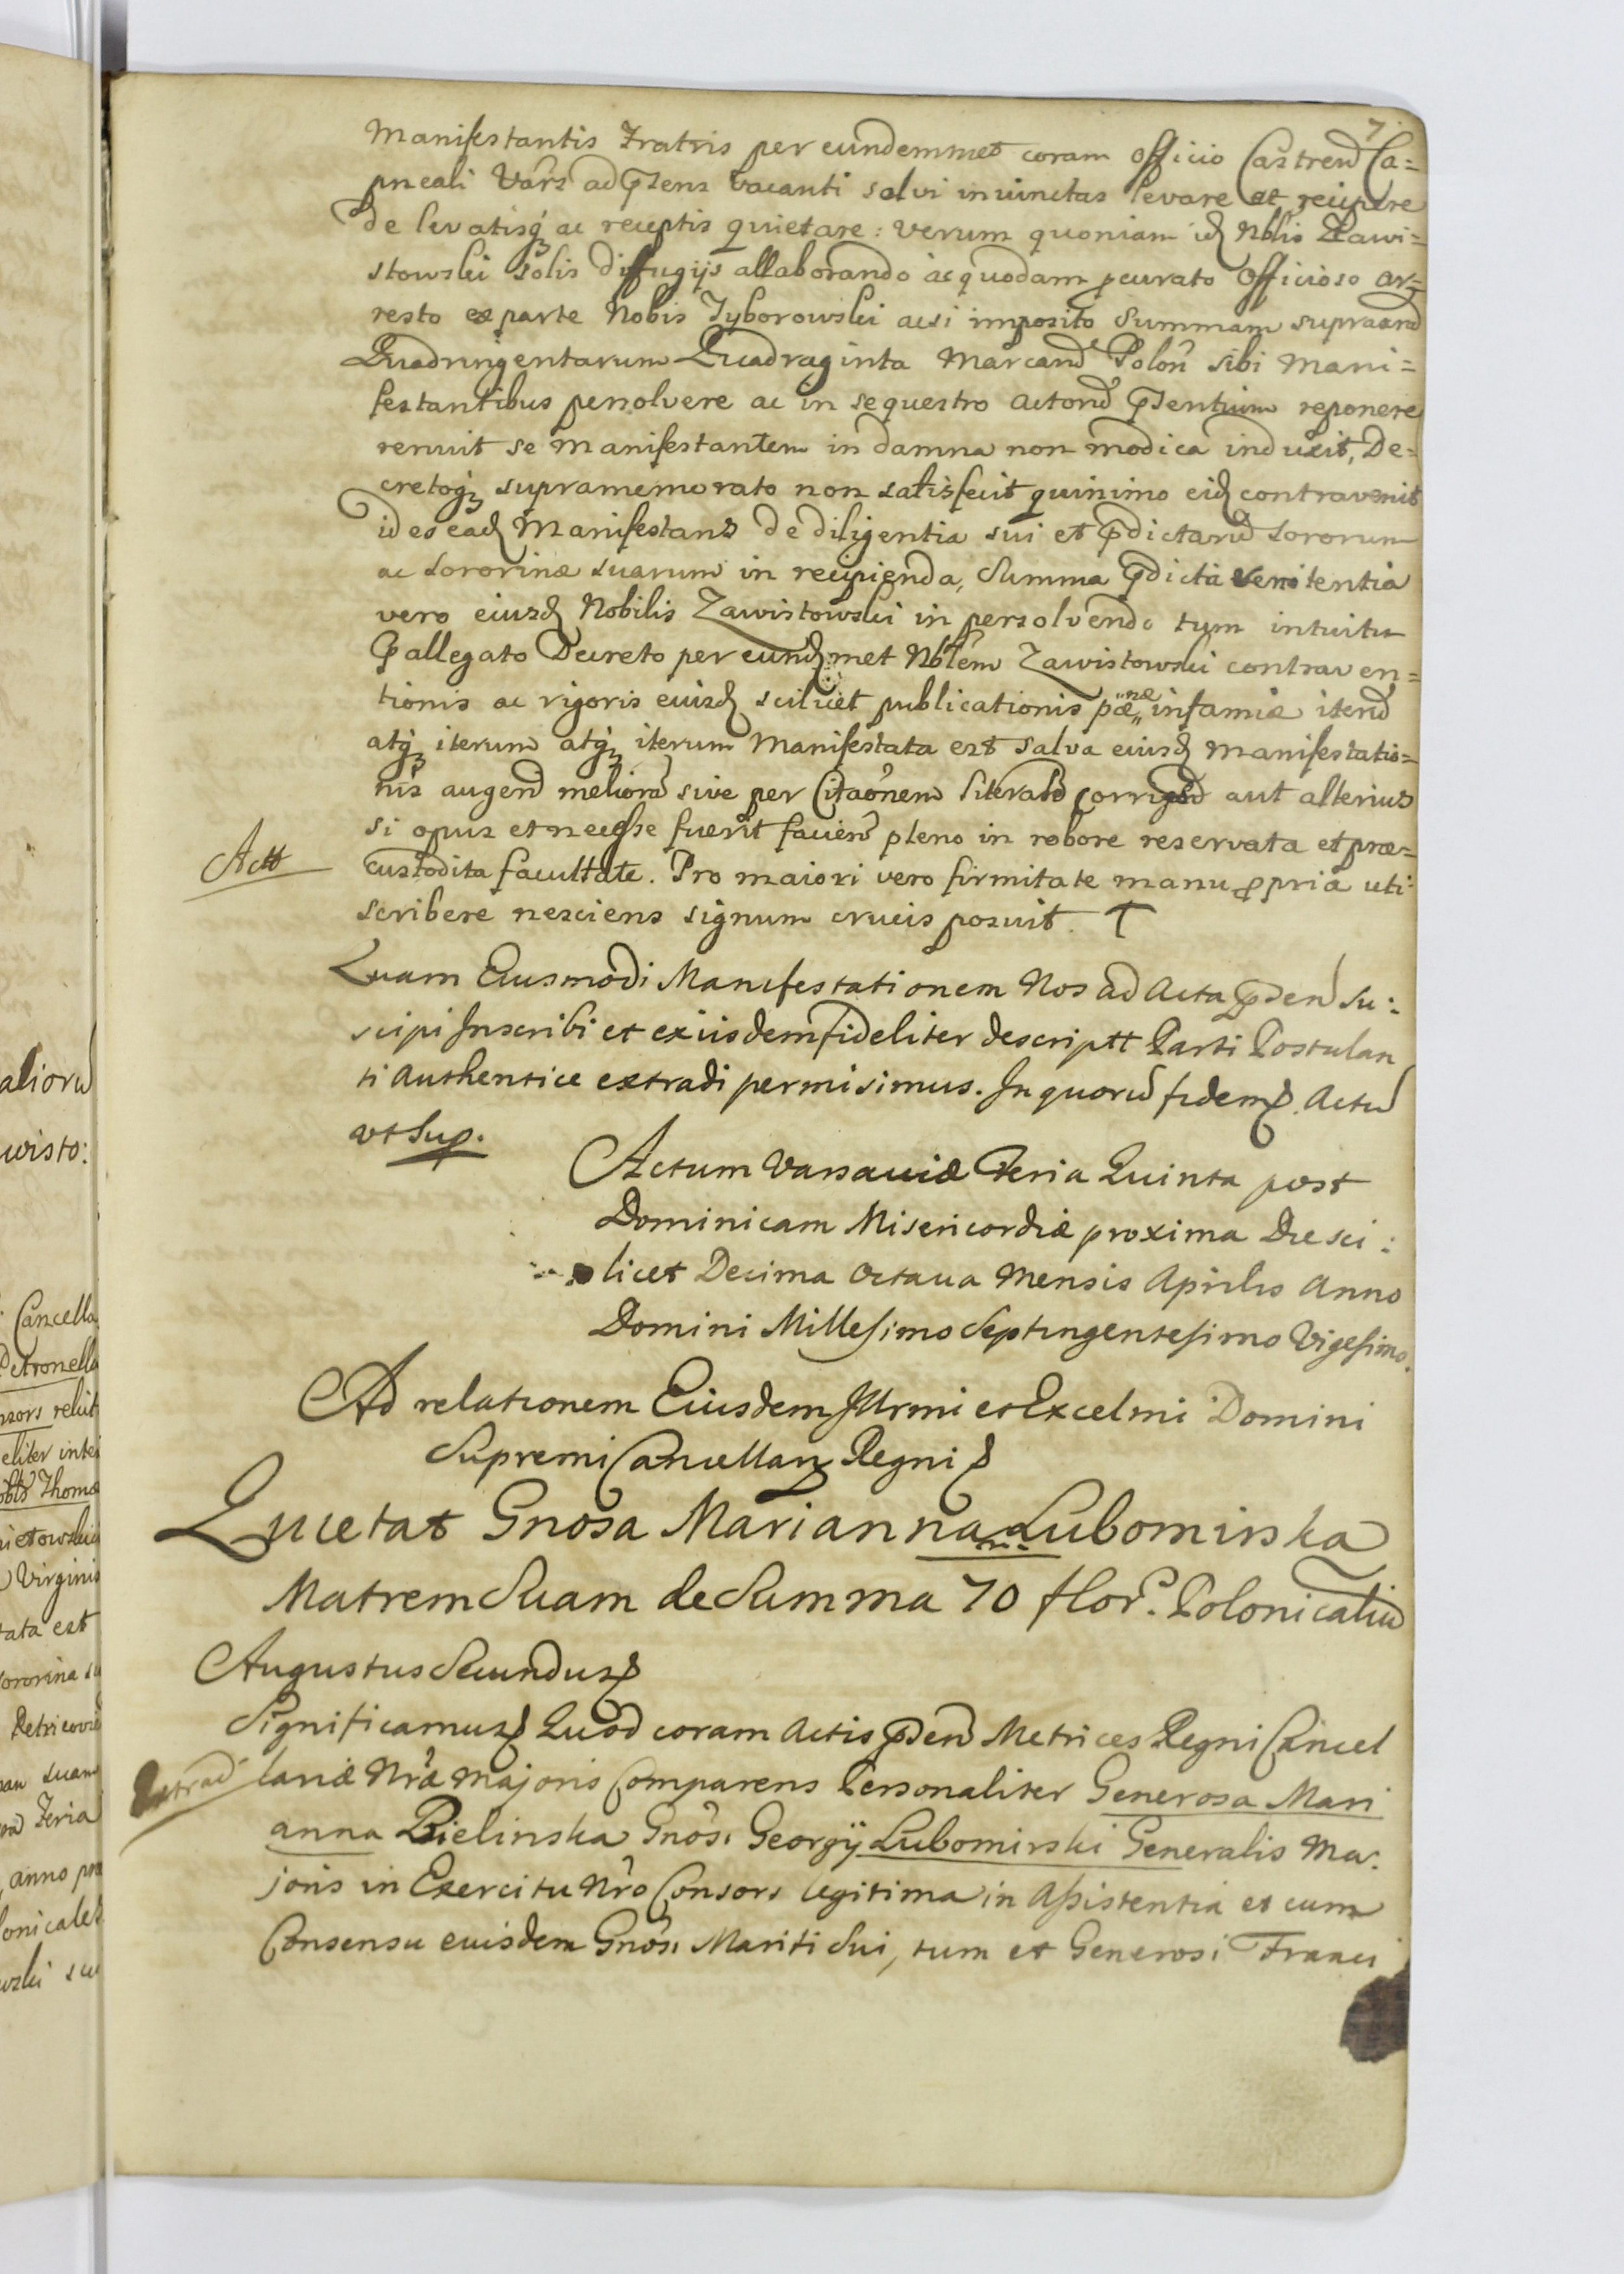 7.
Manifestantis Fratris per eundemmet coram Officio Castrend Ca=
pneali Vars ad pnsens vacanti solvi iniunctas levare et recipere
de levatisq ac receptis quietare: verum quoniam id Nblis Zawi=
stowski solis diffugijs allaborando ac quodam pcurato Officioso ar=
resto ex parte Nobis Tyborowski acsi imposito Summam
Quadringentarum Quadraginta Marcand Polon sibi Mani=
festantibus persolvere ac in sequestro Actord pnsentium reponere
renuit se Manifestantem in damna non modica induxit, De=
cretoq supramemorato non satisfecit quinimo eid contravenit
ideo ead Manifestans de diligentia sui et pdictard Sororum
ac Sororinæ suarum in recipienda, Summa pdicta renitentia
vero eiusd Nobilis Zawistowski in persolvendo tum intuitu
pallegato Decreto per eundmet Nblem Zawistowski contraven=
tionis ac rigoris eiusd scilicet publicationis pæ„næ„ infamiæ iterd
atq iterum atq iterum Manifestata est salva eiusd Manifestatio=
nis augend meliord sive per Citaonem literald corrigend aut alterius
si opus et necesse fuerit faciend pleno in robore reservata et præ=
Actt
custodita facultate. Pro maiori vero firmitate manu ppria uti
scribere nesciens signum crucis posuit. †
Quam Eiusmodi Manifestationem Nos ad Acta pnsend Su:
scipi Inscribi et exiisdem fideliter descriptt Parti Postulan
ti Authentice extradi permisimus. In quord fidem. Actd
vt Sup.
Actum Varsaviæ Feria Quinta post
Dominicam Misericordiæ proxima Die sci:
licet Decima Octava Mensis Aprilis Anno
Domini Millesimo Septingentesimo Vigesimo.
Ad relationem Eiusdem Illrmi et Excelmi Domini
Supremi Cancellarz Regni
Quietat Gnosa Marianna Lubomirska
Matrem Suam de Summa 70 flor. Polonicaliu
Augustus Secundus
Significamus Quod coram Actis pnsend Metrices Regni Cancel
Extrad
lariæ Nræ Majoris Comparens Personaliter Generosa Mari
anna Bielinska Gnosi Georgij Lubomirski Generalis Ma:
joris in Exercitu Nro Consors legitima in Assistentia et cum
Consensu euisdem Gnosi Mariti Sui, tum et Generosi Franci
aliord
wisto:
Cancella
Petronella
Thomæ
Virginis
tata est
Feria
onicales